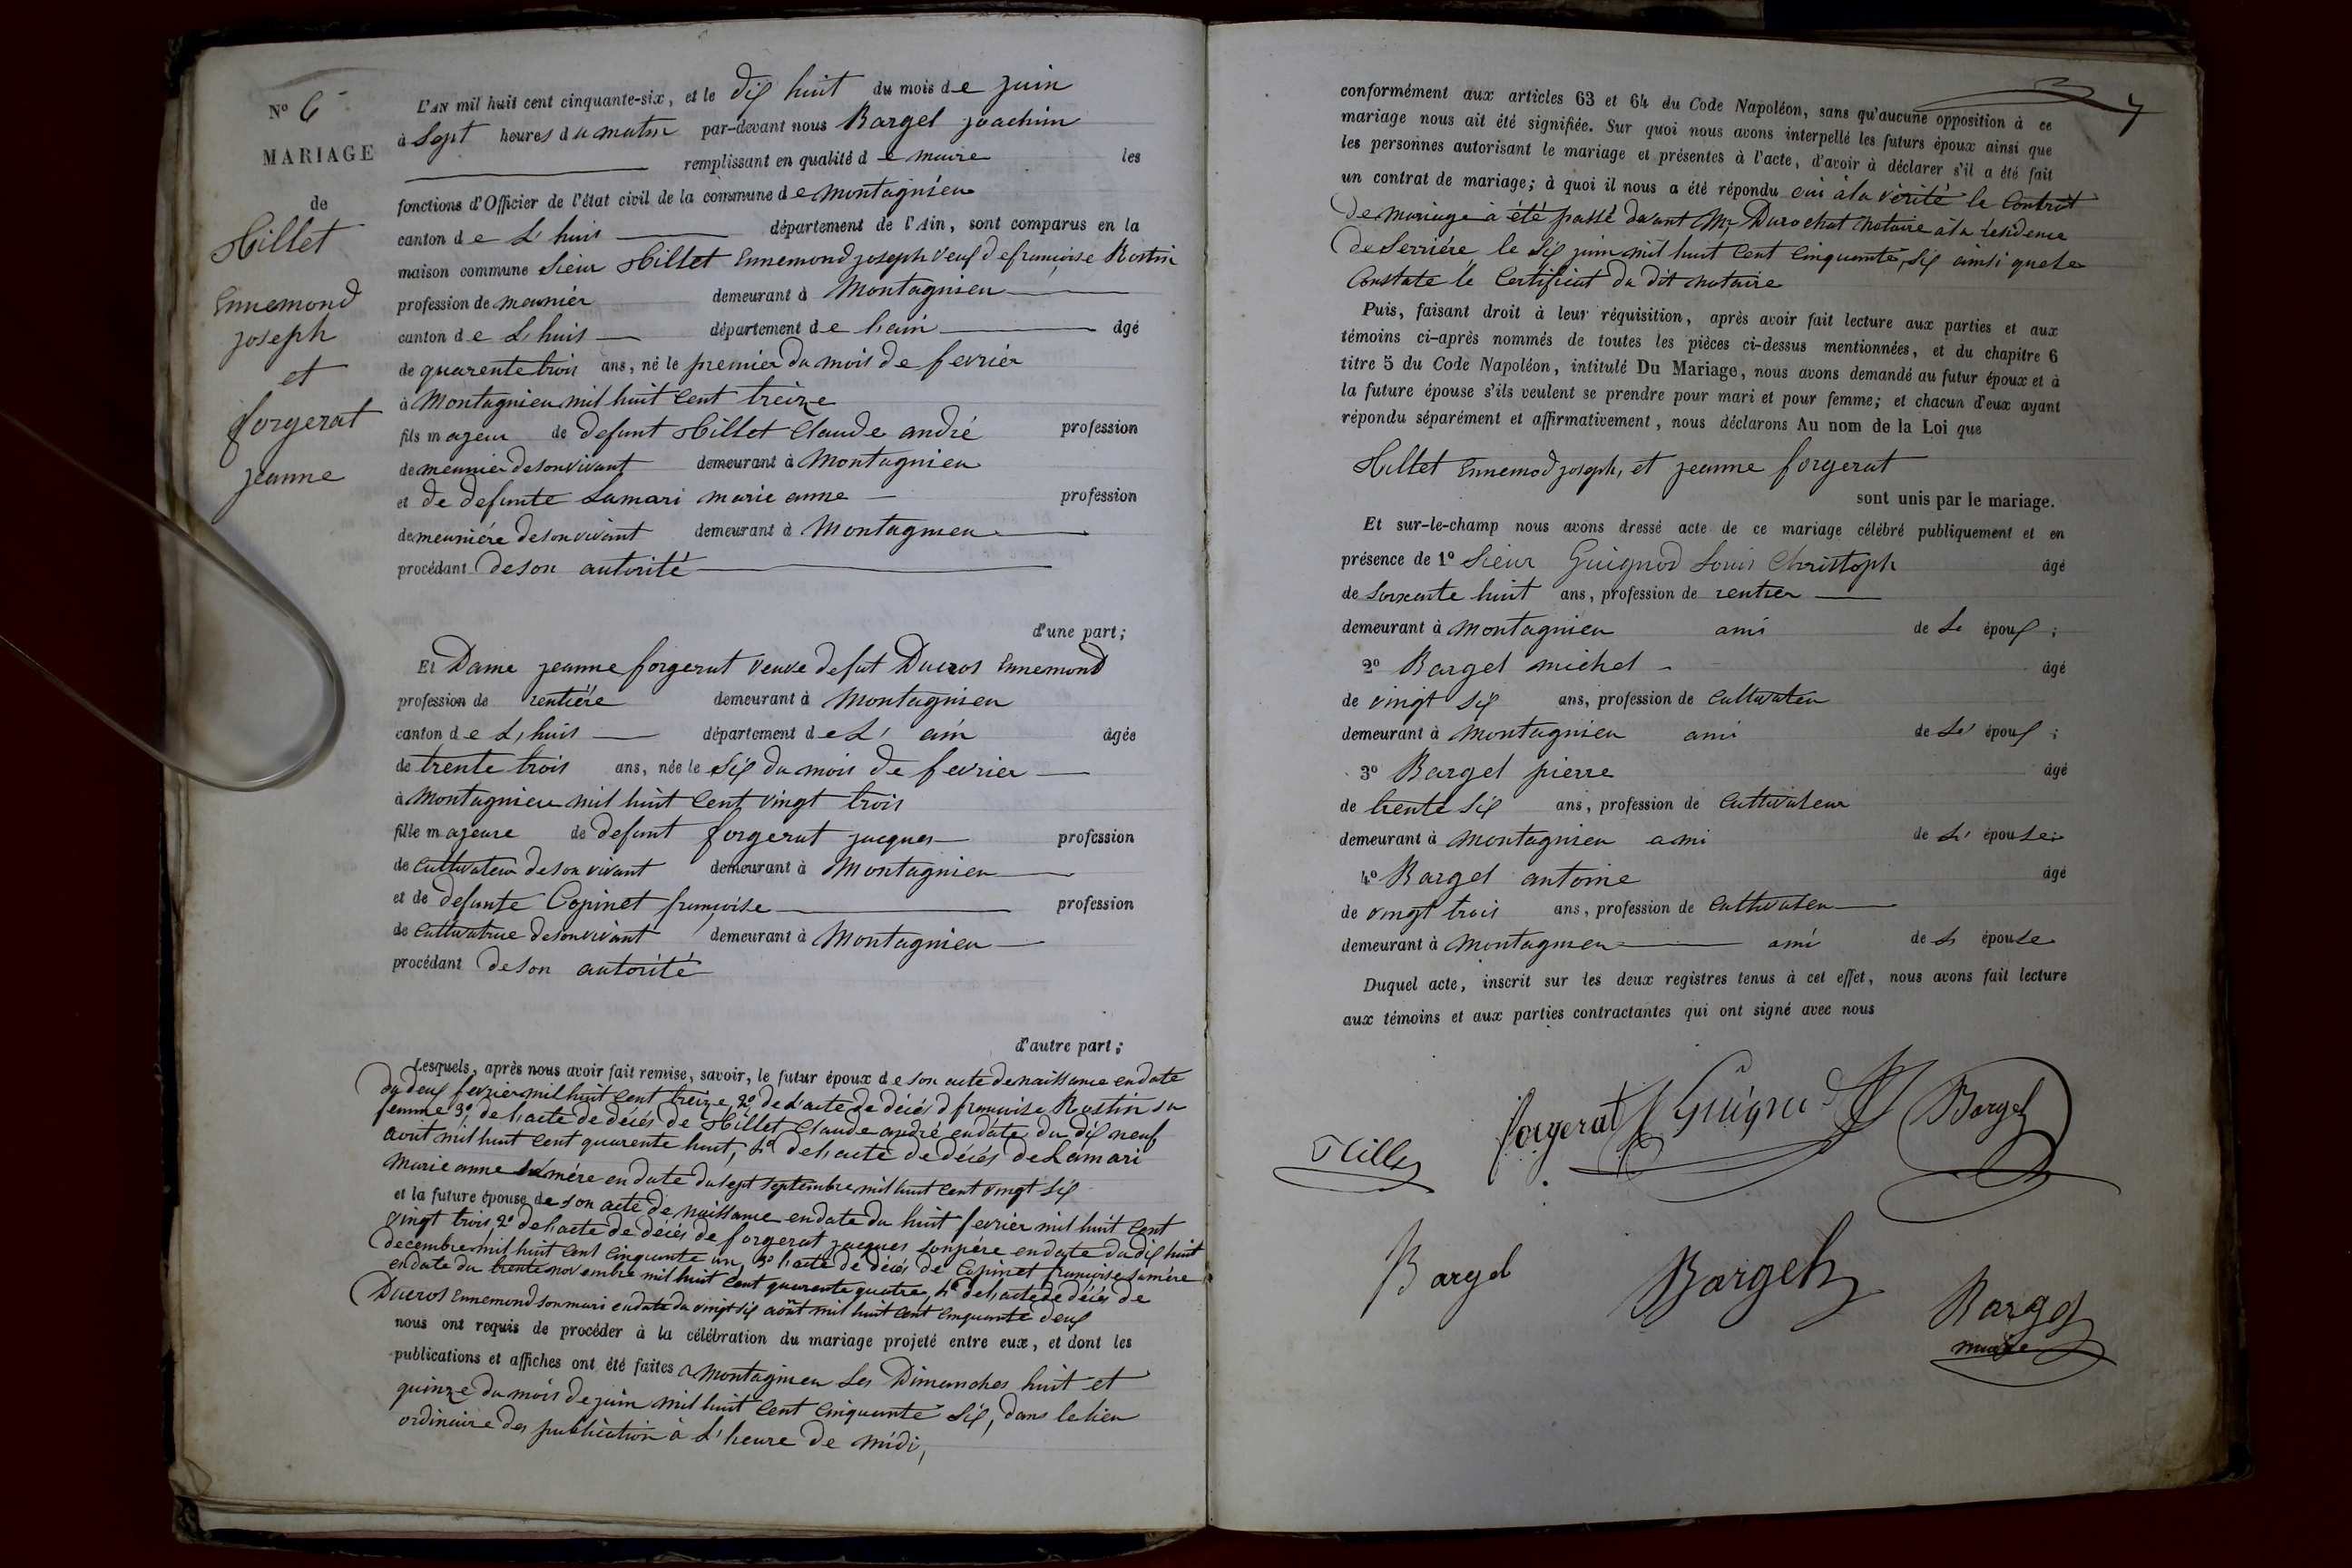 Nº 6
MARIAGE
de
Hillet
Ennemond
joseph
et
forgerat
jeanne
L'AN mil huit cent cinquante-six, et le dix huit du mois de juin
à Sept heures du matin par-devant nous Bargel joachim
remplissant en qualité de maire les
fonctions d'Officier de l'état civil de la commune de montagnieu
canton de L'huis département de l'Ain, sont comparus en la
maison commune Sieur Hillet Ennemond joseph veuf de françoise Rostin
profession de meunier demeurant à Montagnieu
canton de L'huis département de l'ain âgé
de quarente trois ans, né le premier du mois de fevrier
à Montagnieu mil huit Cent treize
fils majeur de defunt Hillet Claude andré profession
de meunier de son vivant demeurant à Montagnieu
et de defunte Lamari marie anne profession
de meuniére de son vivant demeurant à Montagnieu
procédant de son autorité
d'une part;
Et Dame jeanne forgerat veuve de fut Ducros Ennemond
profession de rentiére demeurant à Montagnieu
canton de L'huis département de L'ain âgée
de trente trois ans, née le Six du mois de fevrier
à Montagnieu mil huit Cent vingt trois
fille majeure de defunt forgerat jacques profession
de Cultivateur de son vivant demeurant à Montagnieu
et de defunte Copinet françoise profession
de Cultivatrice de son vivant demeurant à Montagnieu
procédant de son autorité
d'autre part;
Lesquels, après nous avoir fait remise, savoir, le futur époux de son acte de naissance en date
du deux fevrier mil huit Cent treize, 2º de L'acte de décés d françoise Rostin sa
femme 3º, de l'acte de décés de Hillet Claude andré en date du dix neuf
août mil huit Cent quarente huit, 4º de l'acte de décés de Lamari
Marie anne sa mére en date du sept septembre mil huit Cent vingt Six
et la future épouse de son acte de naissance en date du huit fevrier mil huit Cent
vingt trois, 2º de l'acte de décés de forgerat jacques son pére en date du dix huit
decembre mil huit Cent Cinquante un, 3º l'acte de décés de Copinet françoise sa mére
en date du trente novembre mil huit Cent quarente quatre, 4º de l'acte de décés de
Ducros Ennemond son mari en date du vingt six août mil huit Cent Cinquante deux
nous ont requis de procéder à la célébration du mariage projeté entre eux, et dont les
publications et affiches ont été faites a Montagnieu Les Dimanches huit et
quinze du mois de juin mil huit Cent Cinquante Six, dans le lieu
ordinaire des publication à L'heure de midi,
7
conformément aux articles 63 et 64 du Code Napoléon, sans qu'aucune opposition à ce
mariage nous ait été signifiée. Sur quoi nous avons interpellé les futurs époux ainsi que
les personnes autorisant le mariage et présentes à l'acte, d'avoir à déclarer s'il a été fait
un contrat de mariage; à quoi il nous a été répondu oui à la vérité le Contrat
de mariage à été passé devant Mr Durochat notaire à la residence
de Serriére le Six juin mil huit Cent Cinquante, Six ainsi que le
Constate le Certificat du dit notaire
Puis, faisant droit à leur réquisition, après avoir fait lecture aux parties et aux
témoins ci-après nommés de toutes les pièces ci-dessus mentionnées, et du chapitre 6
titre 5 du Code Napoléon, intitulé Du Mariage, nous avons demandé au futur époux et à
la future épouse s'ils veulent se prendre pour mari et pour femme; et chacun d'eux ayant
répondu séparément et affirmativement, nous déclarons Au nom de la Loi que
Hillet Ennemod joseph, et jeanne forgerat
sont unis par le mariage.
Et sur-le-champ nous avons dressé acte de ce mariage célébré publiquement et en
présence de 1º Sieur Guignod Louis Christoph âgé
de Soixente huit ans, profession de rentier
demeurant à Montagnieu ami de Le époux;
2º Bargel michel âgé
de vingt Six ans, profession de Cultivateu
demeurant à Montagnieu ami de Le époux;
3º Bargel pierre âgé
de trente Six ans, profession de Cultivateur
demeurant à Montagnieu ami de L' épouse;
4º Bargel antoine âgé
de vingt trois ans, profession de Cultivateu
demeurant à Montagnieu ami de L' épouse
Duquel acte, inscrit sur les deux registres tenus à cet effet, nous avons fait lecture
aux témoins et aux parties contractantes qui ont signé avec nous
Hillet forgerat Guignod Bargel
Bargel Bargel Bargel
maire